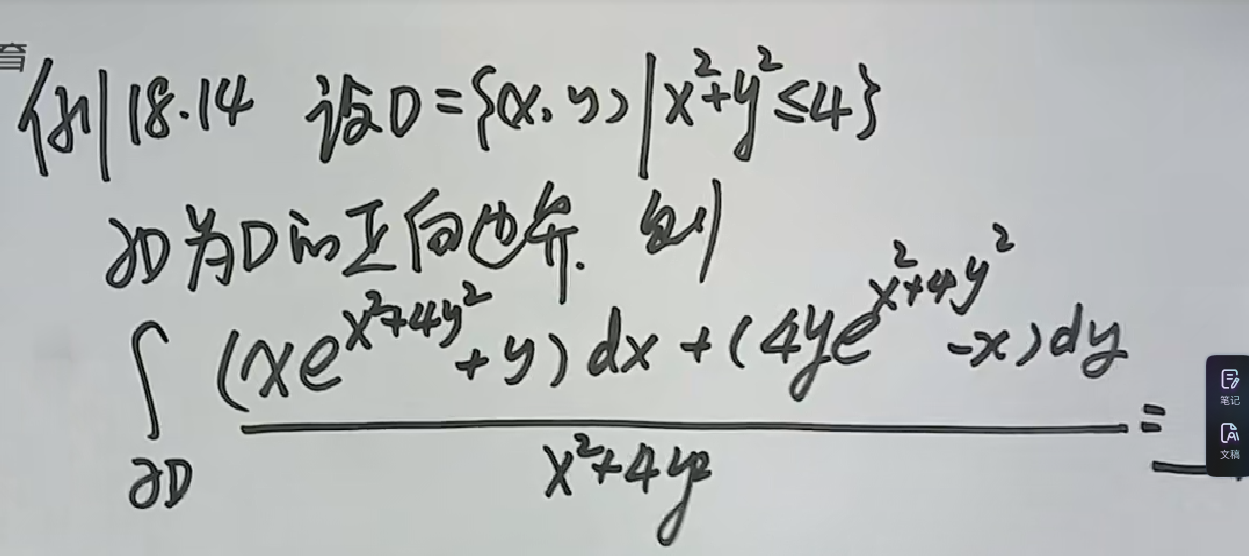 育
例18.14 设D={(x,y)|x²+y²≤4}
∂D为D的正向边界. 则
∫_{∂D} \frac{(xe^{x²+4y²}+y)dx+(4ye^{x²+4y²}-x)dy}{x²+4y²} = __
笔记
文稿